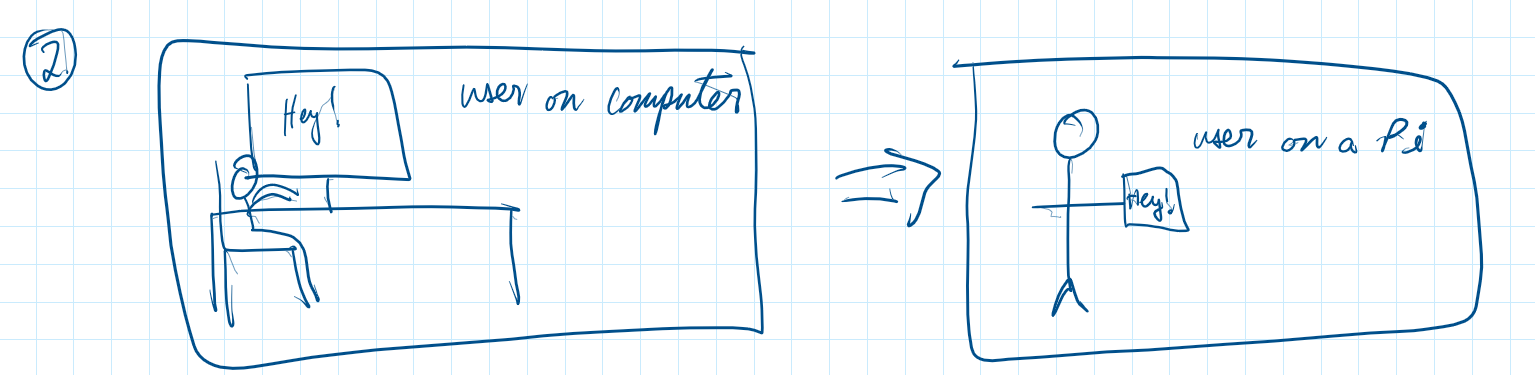 2
Hey!
user on computer
user on a Pi
Hey!